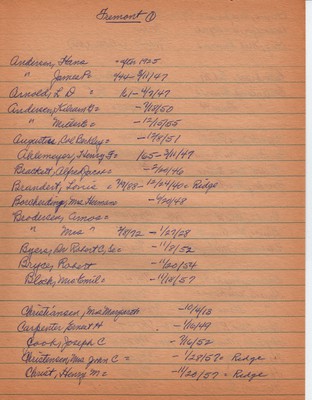 Fremont ①
Andersen, Hans - after 1925
" James P. 1/44 - 3/11/47
Arnold, L D = 1/61 - 4/9/47
Andersen, Hiram G = - 9/10/50
" Millert = - 12/10/55
Augustine, Col Berkley = - 12/8/51
Ahlemeyer, Henry F = 1/65 - 3/11/47
Brackett, Alfred Jacob = - 2/20/46
Brandert, Louis = 7/9/88 - 12/24/40 = Ridge
Borcherding, Mrs Hermano - 4/20/48
Brodersen, Amos =
" Mrs " 3/8/72 - 1/23/28
Byers, Dr. Robert C, Sr = - 11/8/52
Bryce, Robert - 11/20/54
Block, Mrs Emil = - 11/10/57
Christiansen, Mrs Margareth - 10/4/13
Carpenter, Grant H - 1/10/49
Cook, Joseph C - 7/16/52
Christensen, Mrs John C = - 1/28/53 = Ridge
Christ, Henry M = - 11/20/57 = Ridge